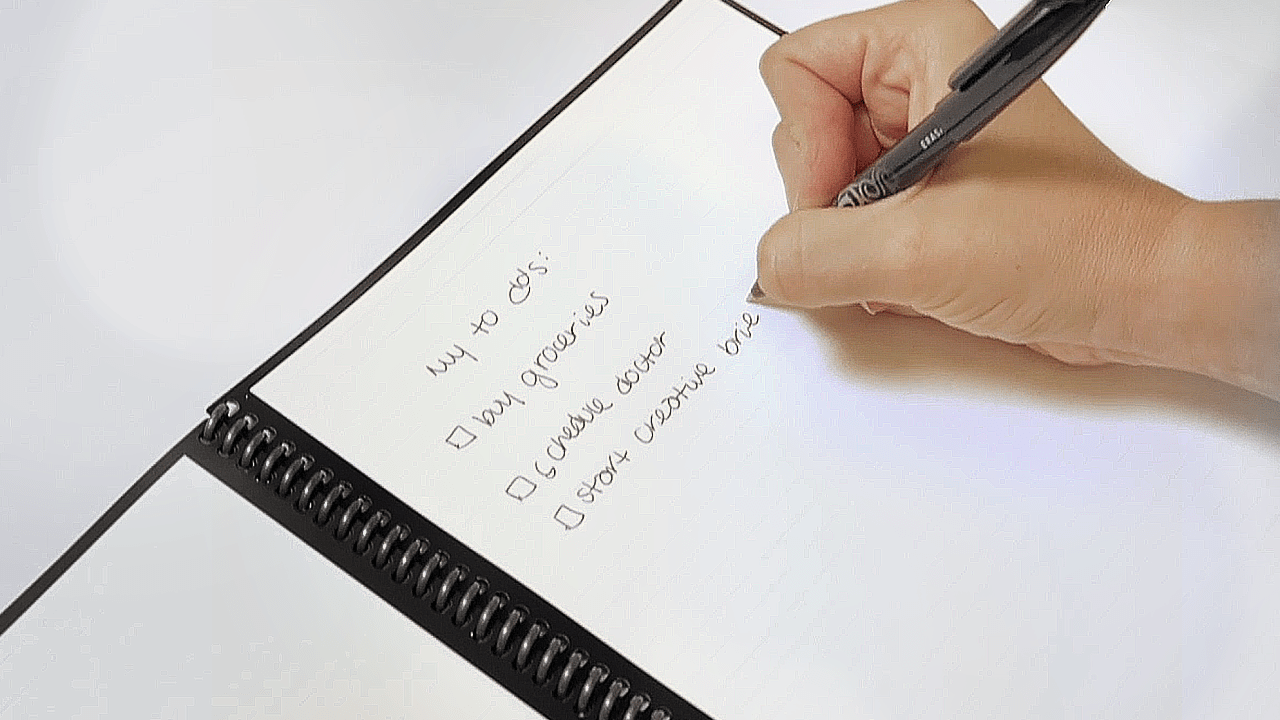 My to dos:
☐ buy groceries
☐ schedule doctor
☐ start creative brie
ERAS